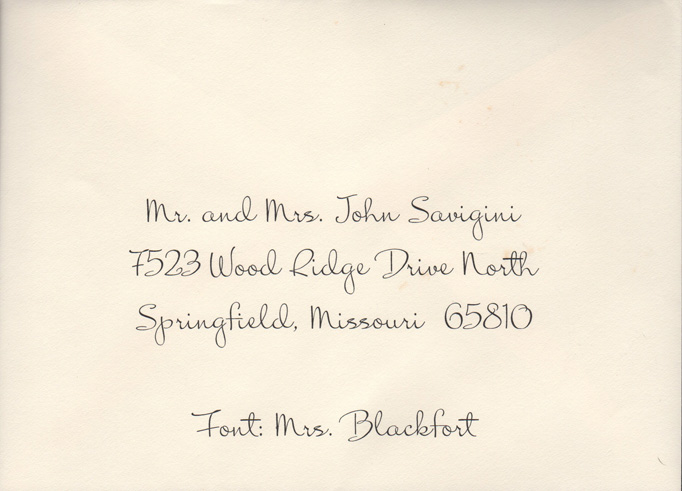 Mr. and Mrs. John Savigini
7523 Wood Ridge Drive North
Springfield, Missouri 65810
Font: Mrs. Blackfort